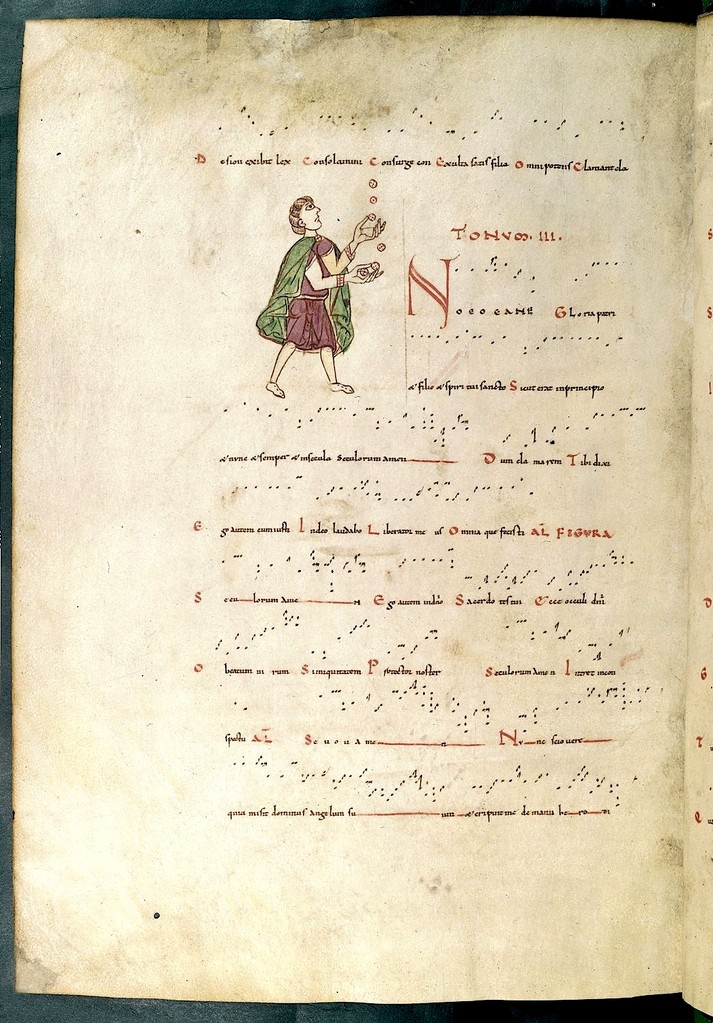 De sion exibit lex Consolamini Consurge con Exulta satis filia Omnipotens Clamantela
TONUM. III.
Noeoeane Gloria patri
& filio & spiritui sancto Sicut erat in principio
& nunc & semper & in secula Seculorum amen Dum cla marem Tibi dixi
Ego autem cum iusti In deo laudabo Liberator me us Omnia que fecisti AL FIGURA
Seculorum Amen Ego autem in dño Sacerdo tes tui Ecce occuli dñi
O beatum ui rum Si iniquitatem Protector noster Seculorum Amen Intret in con
spectu AL Seuouamen Nunc scio uere
quia misit dominus Angelum suum & eripuit me de manu herodi